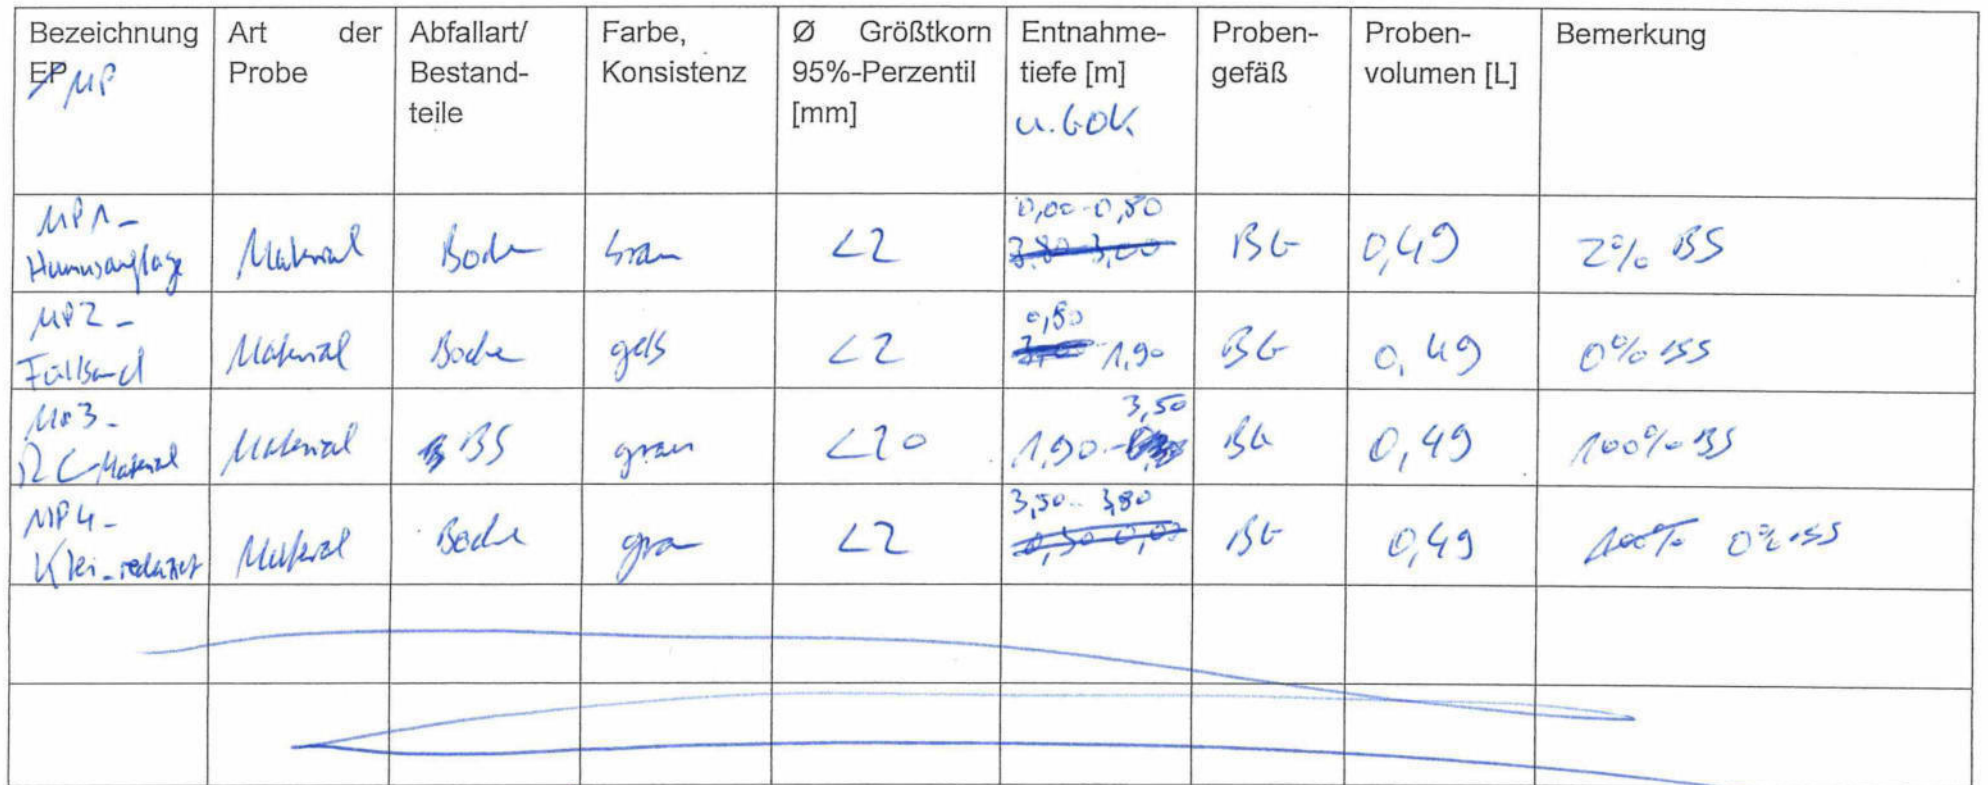 Bezeichnung EP MP | Art der Probe | Abfallart/ Bestand-teile | Farbe, Konsistenz | Ø Größtkorn 95%-Perzentil [mm] | Entnahme-tiefe [m] u. GOK | Proben-gefäß | Proben-volumen [L] | Bemerkung
MP1- Humusauflage | Material | Boden | braun | <2 | 0,00-0,80 | BG | 0,49 | 2% BS
MP2- Füllsand | Material | Boden | gelb | <2 | 0,80 1,90 | BG | 0,49 | 0% BS
MP3- RC-Material | Material | BS | grau | <20 | 1,90- 3,50 | BG | 0,49 | 100% BS
MP4- Klei | Material | Boden | grau | <2 | 3,50-3,80 | BG | 0,49 | 100% 0% BS